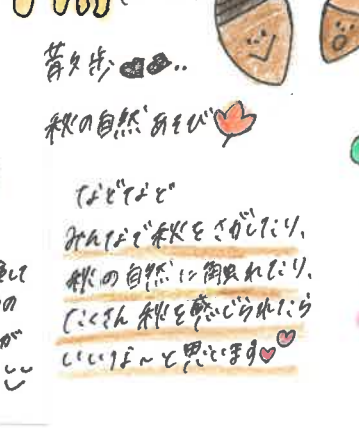 散歩
秋の自然あそび
などなど
みんなで秋をさがしたり、
秋の自然に触れたり、
たくさん秋を感じられたら
いいな〜と思います
して
の
が